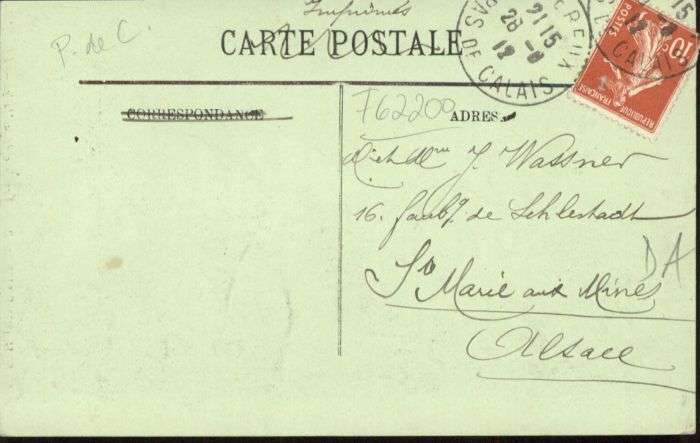 Imprimés
P. de C.
CARTE POSTALE
CORRESPONDANCE
F62200
ADRES
J. Wassner
16. faubg de Schlestadt
Ste Marie aux Mines
Alsace
DA
PAS DE CALAIS
21 15
28 -8
12
10
POSTES
REPUBLIQUE FRANÇAISE
15
CALAIS